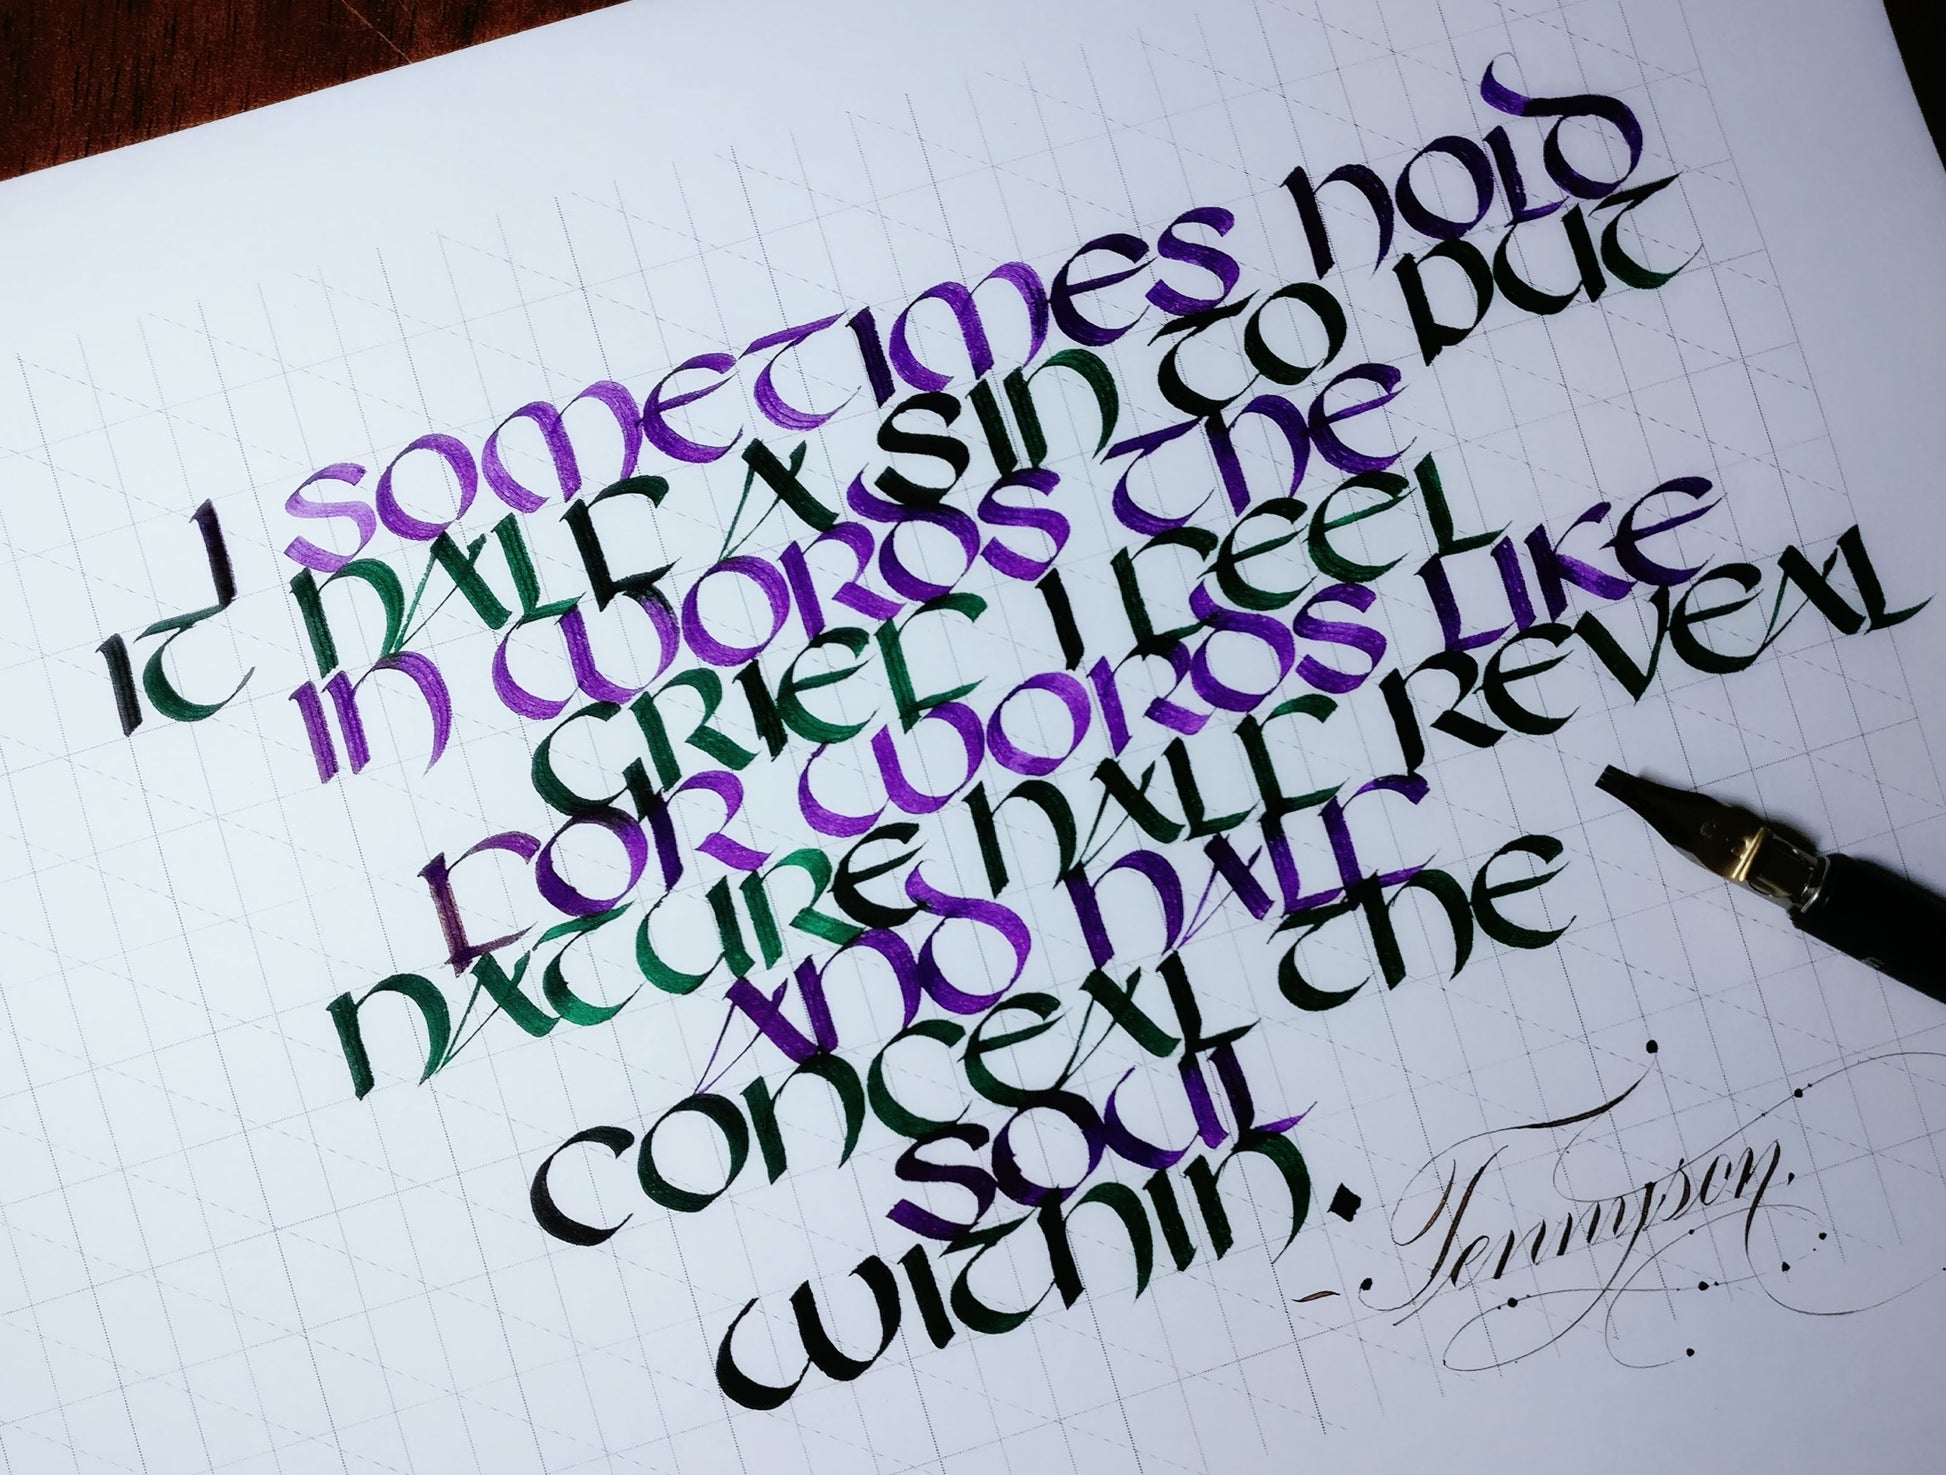 I SOMETIMES HOLD
IT HALF A SIN TO PUT
IN WORDS THE
GRIEF I FEEL
FOR WORDS LIKE
NATURE HALF REVEAL
AND HALF
CONCEAL THE
SOUL
WITHIN.
- Tennyson.